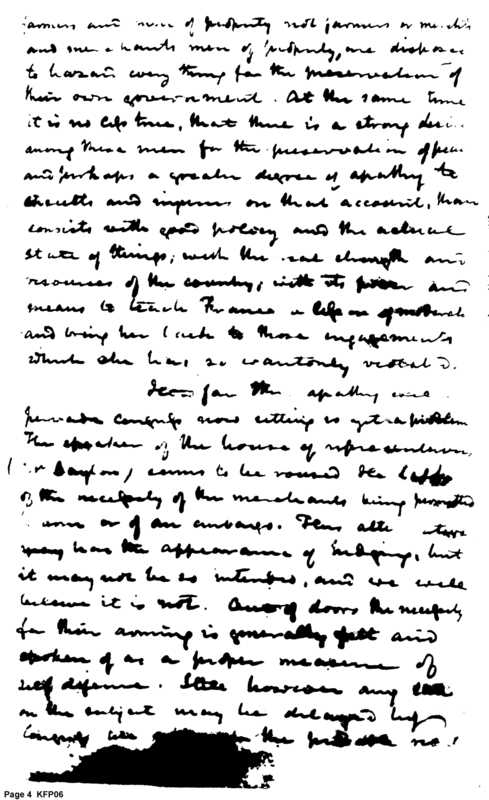 farmers and men of property not farmers or
and merchants men of property, are disposed
to hazard every thing for the preservation of
their own government. At the same time
it is no less true, that there is a strong
among these men for the preservation of
and perhaps a greater degree of apathy to
insults and on that account, than
consists with good policy and the actual
state of things; with the real strength and
resources of the country; with its power and
means to teach France a lesson of
and bring her back to those engagements
which she has so wantonly violated.
How far the apathy will
pervade Congress now sitting is yet a problem
The speaker of the house of representatives,
Dayton) seems to be roused. He
of the necessity of the merchants being permitted
or of an embargo. This
may have the appearance of hedging, but
it may not be so intended, and we will
believe it is not. Out of doors the necessity
for their arming is generally felt and
spoken of as a proper measure of
self defence. Still however any
on the subject may be delayed
Congress the probable
Page 4 KFP06